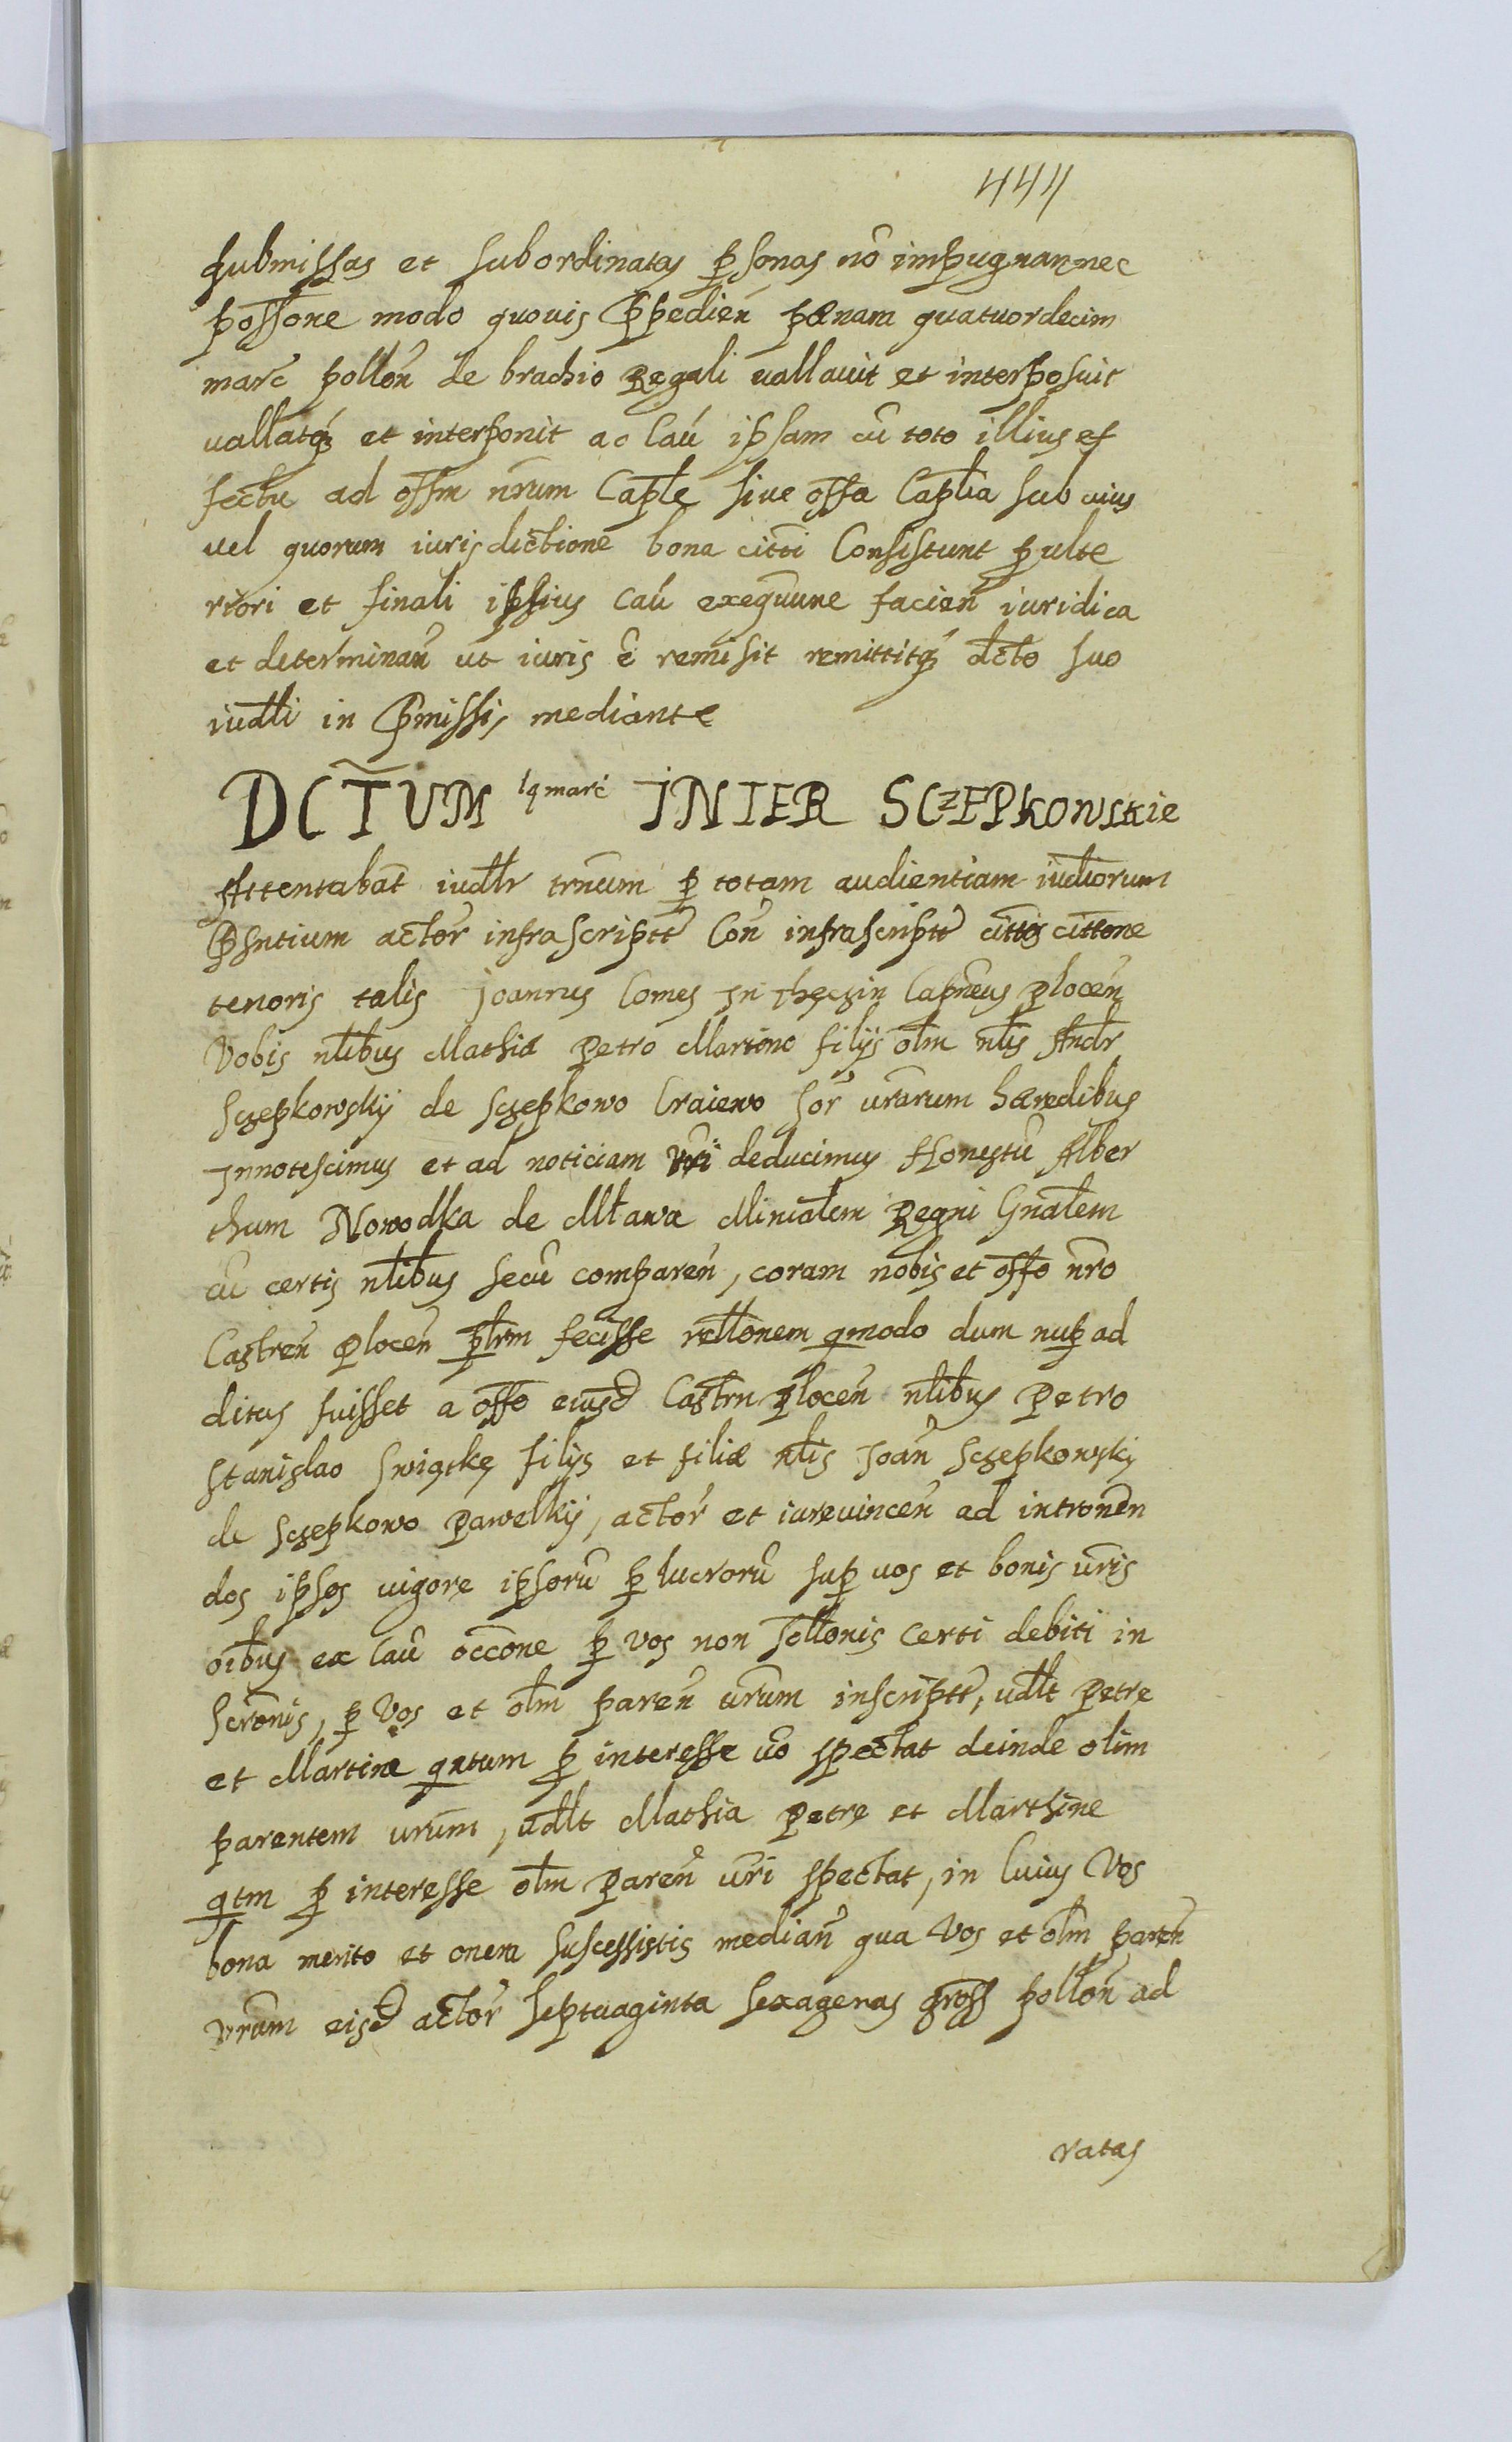 444
submissas et subordinatas p̱sonas nō impugnan̄ nec
possone modo quouis p̄pedien̄ pænam quatuordecim
marc̄ pollōn de brachio Regali uallauit et interposuit
uallatq́ʒ et interponit ac Caū ipsam cū toto illius ef
fectu ad offm nr̄um Caple siue offa Caplia sub cuius
uel quorum iurisdictione bona citti Consistunt p̱ ulte
riori et finali ipsius Caū exeqūune facien̄ iuridica
et determinan̄ ut iuris ē remisit remittitq́ʒ dcto suo
iudlli in p̄missis mediante
DCT̃UM 14 marc̄ INTER SCZEPKOWSKIE
Attentabat̄ iudllr trn̄um p̱ totam audientiam iudīorum
p̄sntium actor̄ infrascriptt Con̄ infrascriptt cittos cittone
tenoris talis Joannes Comes in Thęczin Capneus plocen̄
Vobis nlibus Mathiæ Petro Martino filijs olm nlis Andr̄
Sczepkowskij de Sczepkowo Craiewo sor̄ ur̄arum hæredibus
Innotescimus et ad noticiam ur̄i deducimus Honestū Alber
thum Nowodka de Mława Minialem Regni Gnalem
cū certis nlibus secū comparen̄, coram nobis et offo nr̄o
Castren̄ plocen̄ plrm fecisse rellonem qmodo dum nup̱ ad
ditus fuisset a offo eiusd̄ Castrn̄ plocen̄ nlibus Petro
Stanislao Swiętkę filijs et filiæ nlis Joan̄ Sczepkowskij
de Sczepkowo Pawelkij, actor̄ et iureuincen̄ ad intronen̄
dos ipsos uigore ipsorū p̱ lucrorū sup̱ uos et bonis ur̄is
oibus ex Caū occone p̱ vos non sollonis certi debiti in
scr̄onis, p̱ Vos et olm paren̄ ur̄um inscriptt, udllt Petre
et Martine qntum p̱ interesse uō spectat deinde olim
parentem ur̄um, udllt Mathia Petre et Marthine
qtm p̱ interesse olm paren̄ ur̄i spectat, in Cuius Vos
bona merito et onera suscessistis median̄ qua Vos et olm paren̄
vr̄um eisd̄ actor̄ septuaginta sexagenas gross pollōn ad
ratas